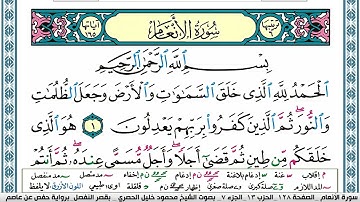 سُورَةُ الأَنْعَامِ
بِسْمِ ٱللَّهِ ٱلرَّحْمَٰنِ ٱلرَّحِيمِ
ٱلْحَمْدُ لِلَّهِ ٱلَّذِى خَلَقَ ٱلسَّمَٰوَٰتِ وَٱلْأَرْضَ وَجَعَلَ ٱلظُّلُمَٰتِ
وَٱلنُّورَ ثُمَّ ٱلَّذِينَ كَفَرُوا۟ بِرَبِّهِمْ يَعْدِلُونَ ١ هُوَ ٱلَّذِى
خَلَقَكُم مِّن طِينٍ ثُمَّ قَضَىٰٓ أَجَلًا وَأَجَلٌ مُّسَمًّى عِندَهُۥ ثُمَّ أَنتُمْ
سورة الأنعام الصفحة ١٢٨ الحزب ١٣ الجزء ٧ بصوت الشيخ محمود خليل الحصري بقصر المنفصل برواية حفص عن عاصم